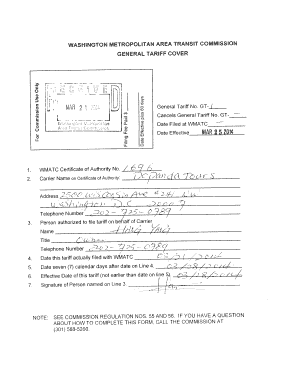 WASHINGTON METROPOLITAN AREA TRANSIT COMMISSION
GENERAL TARIFF COVER
For Commission Use Only
RECEIVED
MAR 21 2014
Filing Fee Paid $
Date Effective plus 60 days
General Tariff No. GT-
Cancels General Tariff No. GT-
Date Filed at WMATC
Date Effective MAR 25 2014
1. WMATC Certificate of Authority No. 1696
2. Carrier Name on Certificate of Authority: Depanda Tours
Address 2500 Wisconsin Ave #241 NW
Washington DC 20007
Telephone Number 202-725-0989
3. Person authorized to file tariff on behalf of Carrier
Name
Title Owner
Telephone Number 202-725-0989
4. Date this tariff actually filed with WMATC 03/21/2014
5. Date seven (7) calendar days after date on Line 4 03/28/2014
6. Effective Date of this tariff (not earlier than date on line 5) 03/28/2014
7. Signature of Person named on Line 3
NOTE: SEE COMMISSION REGULATION NOS. 55 AND 56. IF YOU HAVE A QUESTION
ABOUT HOW TO COMPLETE THIS FORM, CALL THE COMMISSION AT
(301) 588-5260.